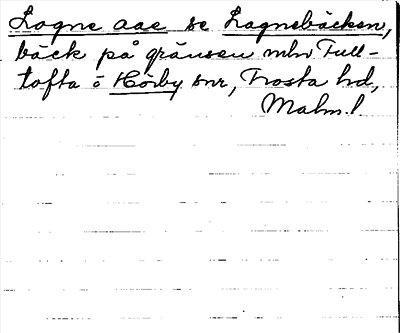 Lagne aae se Lagnebäcken,
bäck på gränsen mln Full-
tofta o Hörby snr, Frosta hd,
Malm.l.